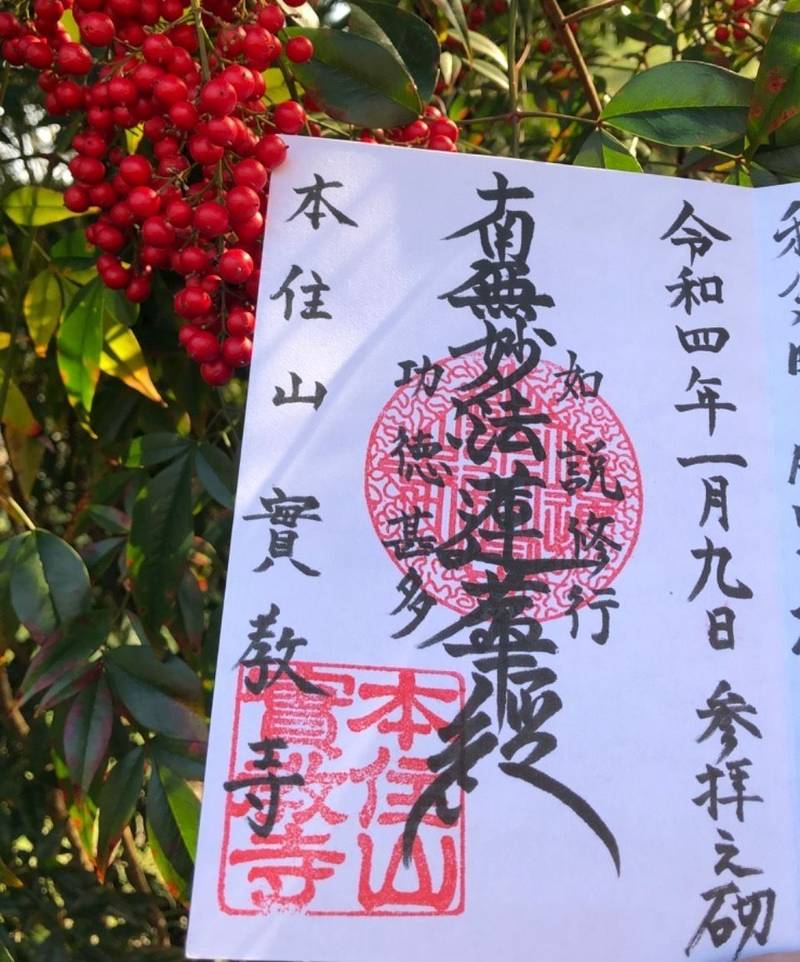 令和四年一月九日 参拝之砌
如説修行
南無妙法蓮華経
功徳甚多
本住山 實教寺
本住山
實教寺